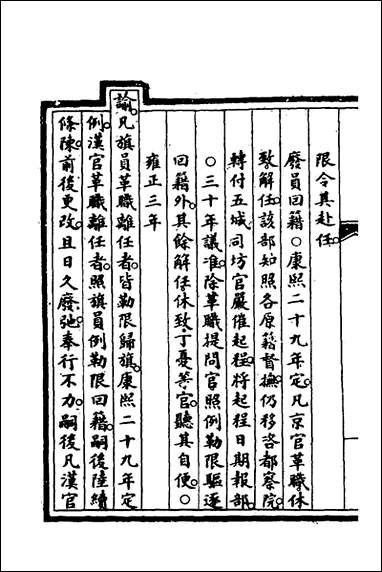 限令其赴任
廢員回籍○康熙二十九年定凡京官革職休
致解任該部知照各原籍督撫仍移咨都察院
轉付五城司坊官嚴催起程將起程日期報部
○三十年議准除革職提問官照例勒限驅逐
回籍外其餘解任休致丁憂等官聽其自便○
雍正三年
諭凡旗員革職離任者皆勒限歸旗康熙二十九年定
例漢官革職離任者照旗員例勒限回籍嗣後陸續
條陳前後更改且日久廢弛奉行不力嗣後凡漢官